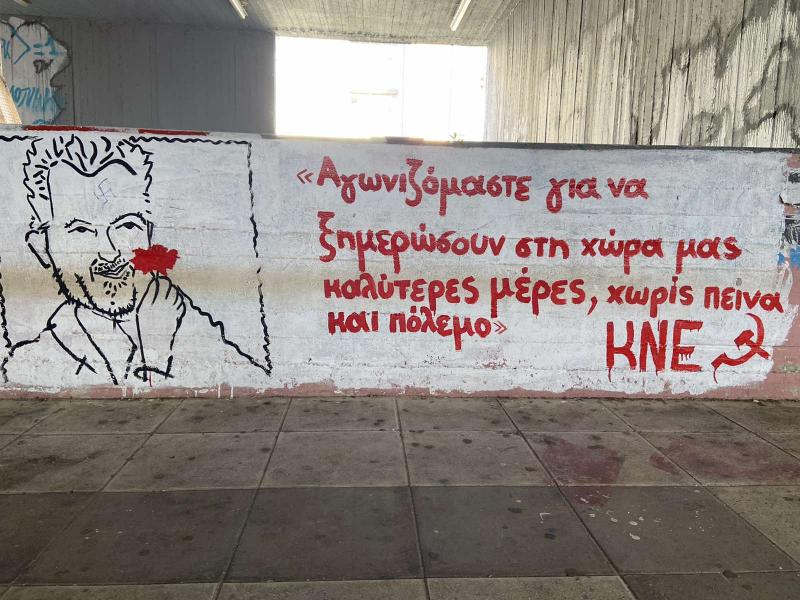 «Αγωνιζόμαστε για να
ξημερώσουν στη χώρα μας
καλύτερες μέρες, χωρίς πείνα
και πόλεμο»
ΚΝΕ